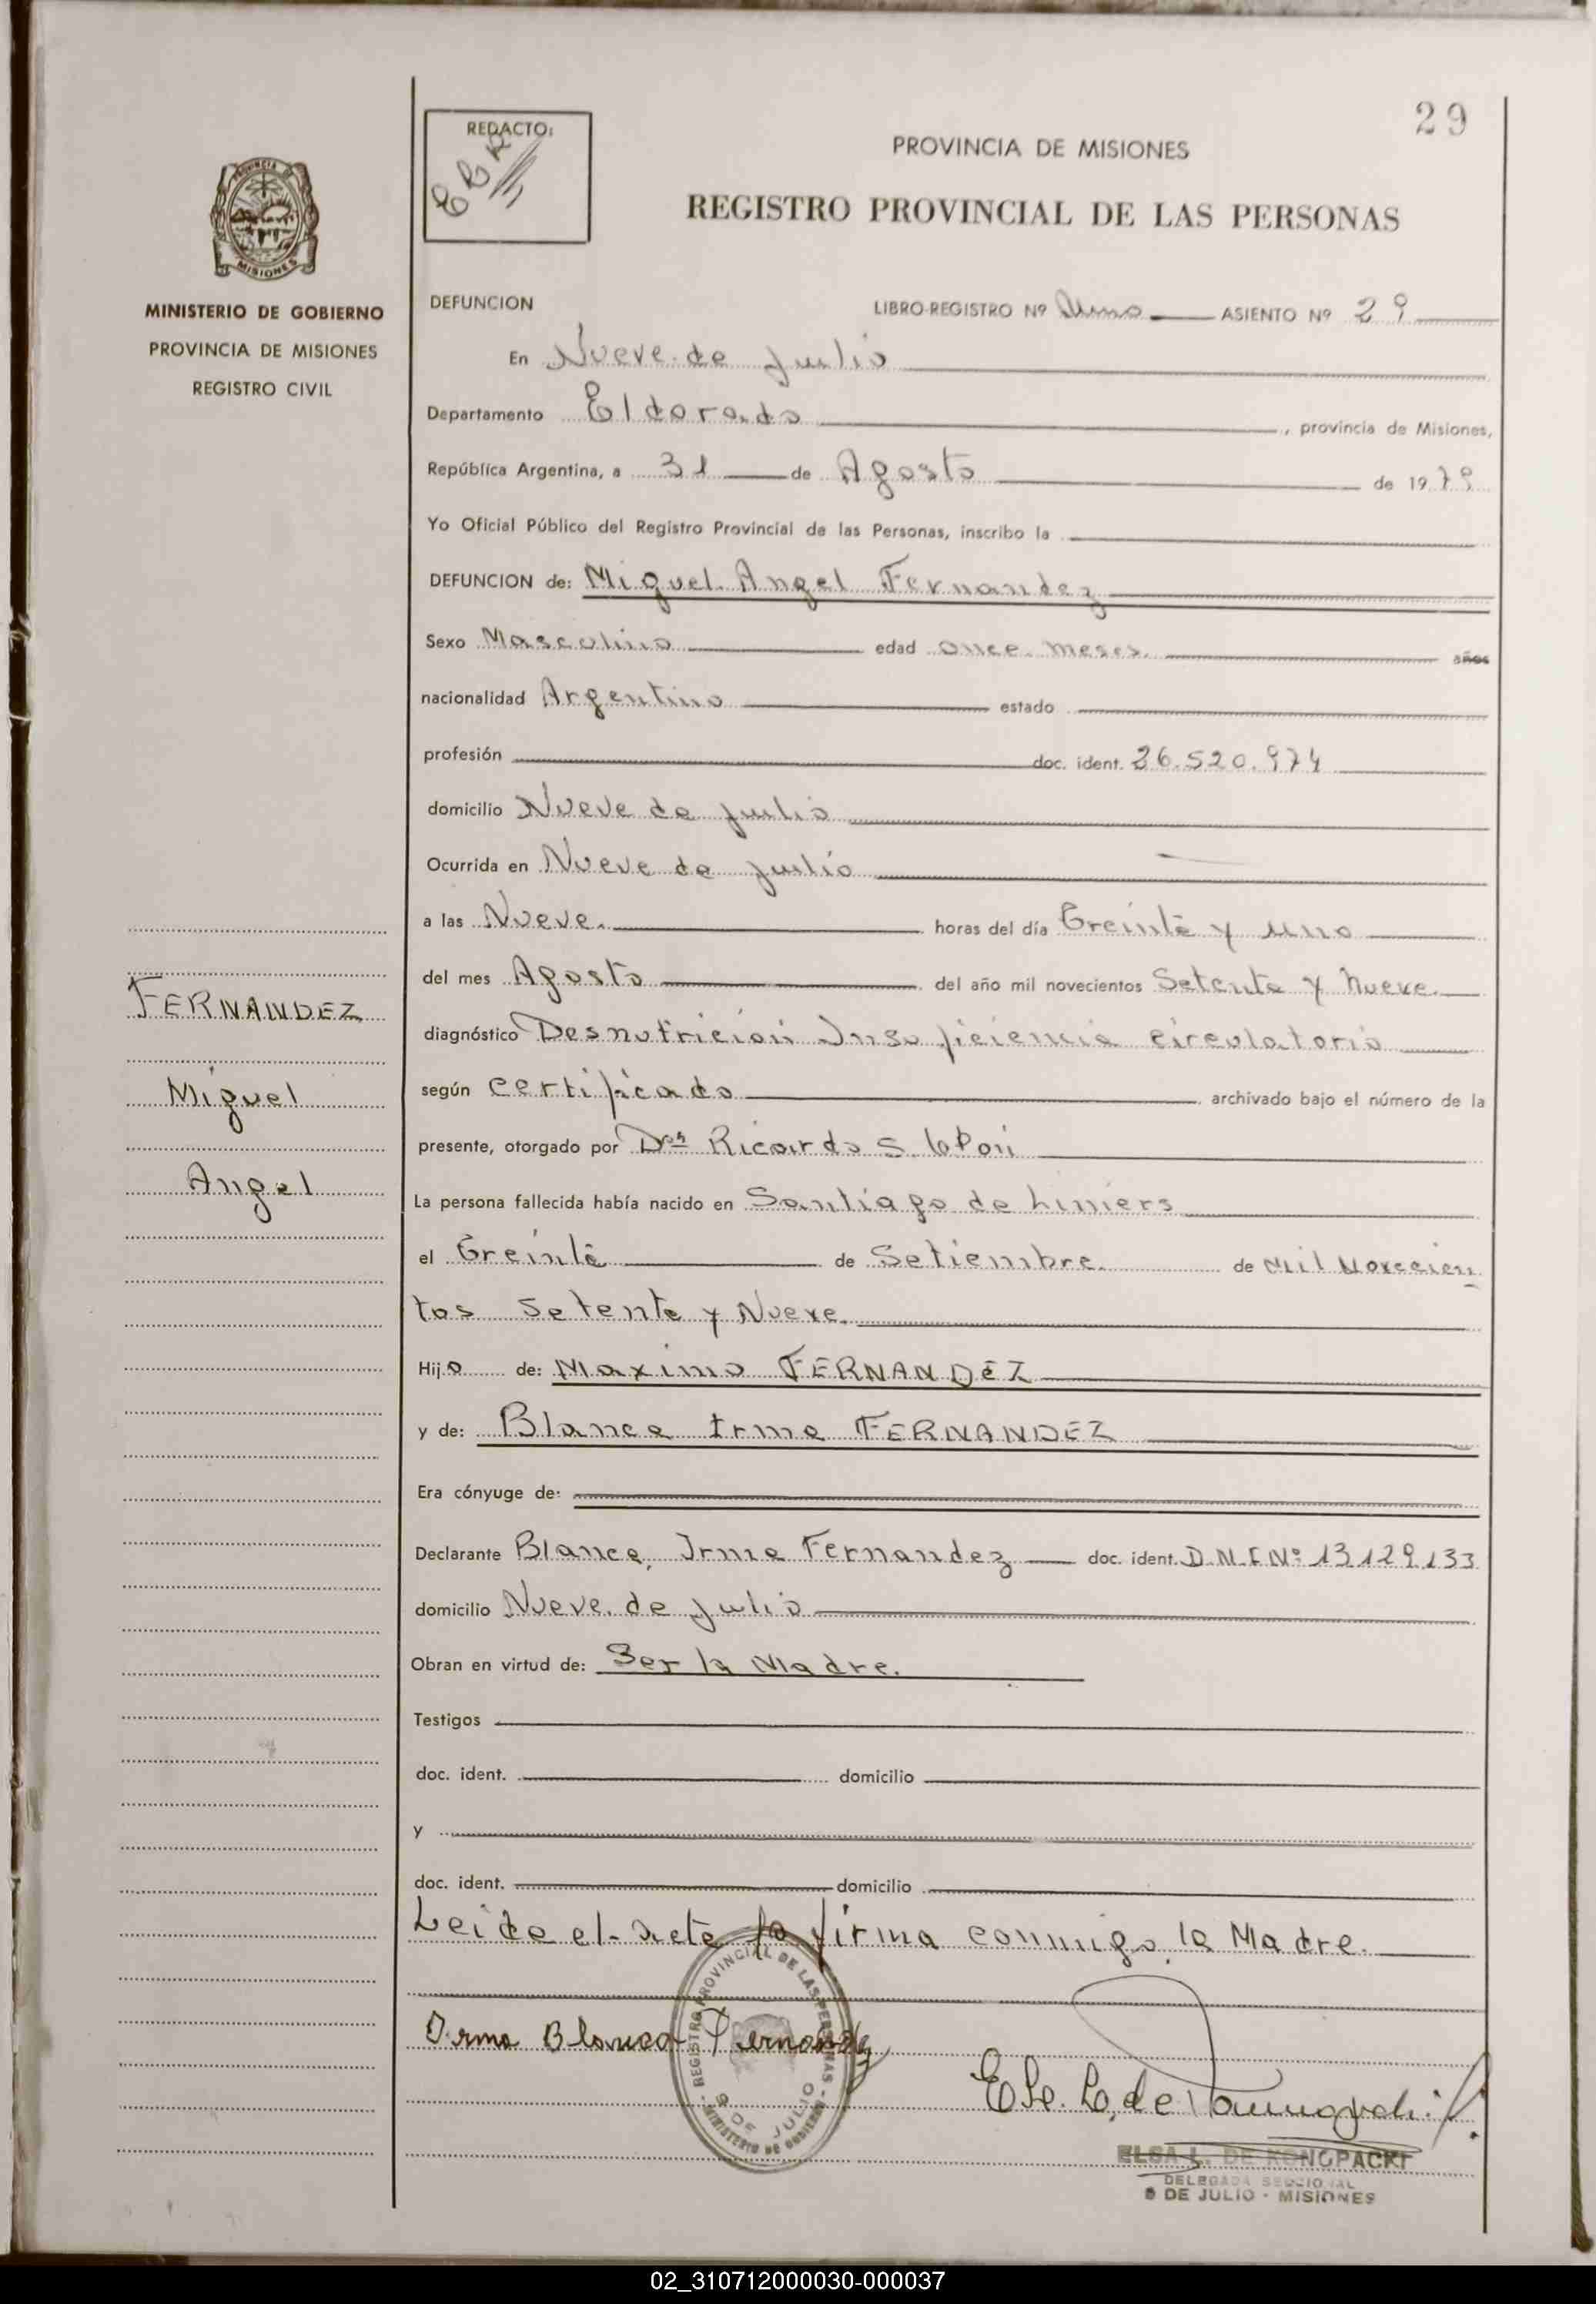 29
REDACTO:
PROVINCIA DE MISIONES
REGISTRO PROVINCIAL DE LAS PERSONAS
PROVINCIA DE
MISIONES
MINISTERIO DE GOBIERNO
PROVINCIA DE MISIONES
REGISTRO CIVIL
DEFUNCION LIBRO-REGISTRO Nº Uno ASIENTO Nº 29
En Nueve de Julio
Departamento Eldorado, provincia de Misiones,
República Argentina, a 31 de Agosto de 1979
Yo Oficial Público del Registro Provincial de las Personas, inscribo la
DEFUNCION de: Miguel Angel Fernandez
Sexo Masculino edad once meses. años
nacionalidad Argentino estado
profesión doc. ident. 26.520.974
domicilio Nueve de Julio
Ocurrida en Nueve de Julio
a las Nueve. horas del día Treinta y uno
del mes Agosto del año mil novecientos Setenta y Nueve.
diagnóstico Desnutricion Insuficiencia circulatoria
según certificado archivado bajo el número de la
presente, otorgado por Dor Ricardo S.
La persona fallecida había nacido en Santiago de Liniers
el Treinta de Setiembre. de Mil Novecien
tos Setenta y Nueve.
Hijo de: Maximo FERNANDEZ
y de: Blanca Irma FERNANDEZ
Era cónyuge de:
Declarante Blanca Irma Fernandez doc. ident. D.N.I Nº 13.129.133
domicilio Nueve de Julio
Obran en virtud de: Ser la Madre.
Testigos
doc. ident. domicilio
y
doc. ident. domicilio
Leida el Acta la firma conmigo la Madre.
FERNANDEZ
Miguel
Angel
Irma Blanca Fernandez
REGISTRO PROVINCIAL DE LAS PERSONAS
9 DE JULIO
MINISTERIO DE GOBIERNO
ELSA L. DE KONOPACKI
DELEGADA SECCIONAL
9 DE JULIO - MISIONES
02_310712000030-000037